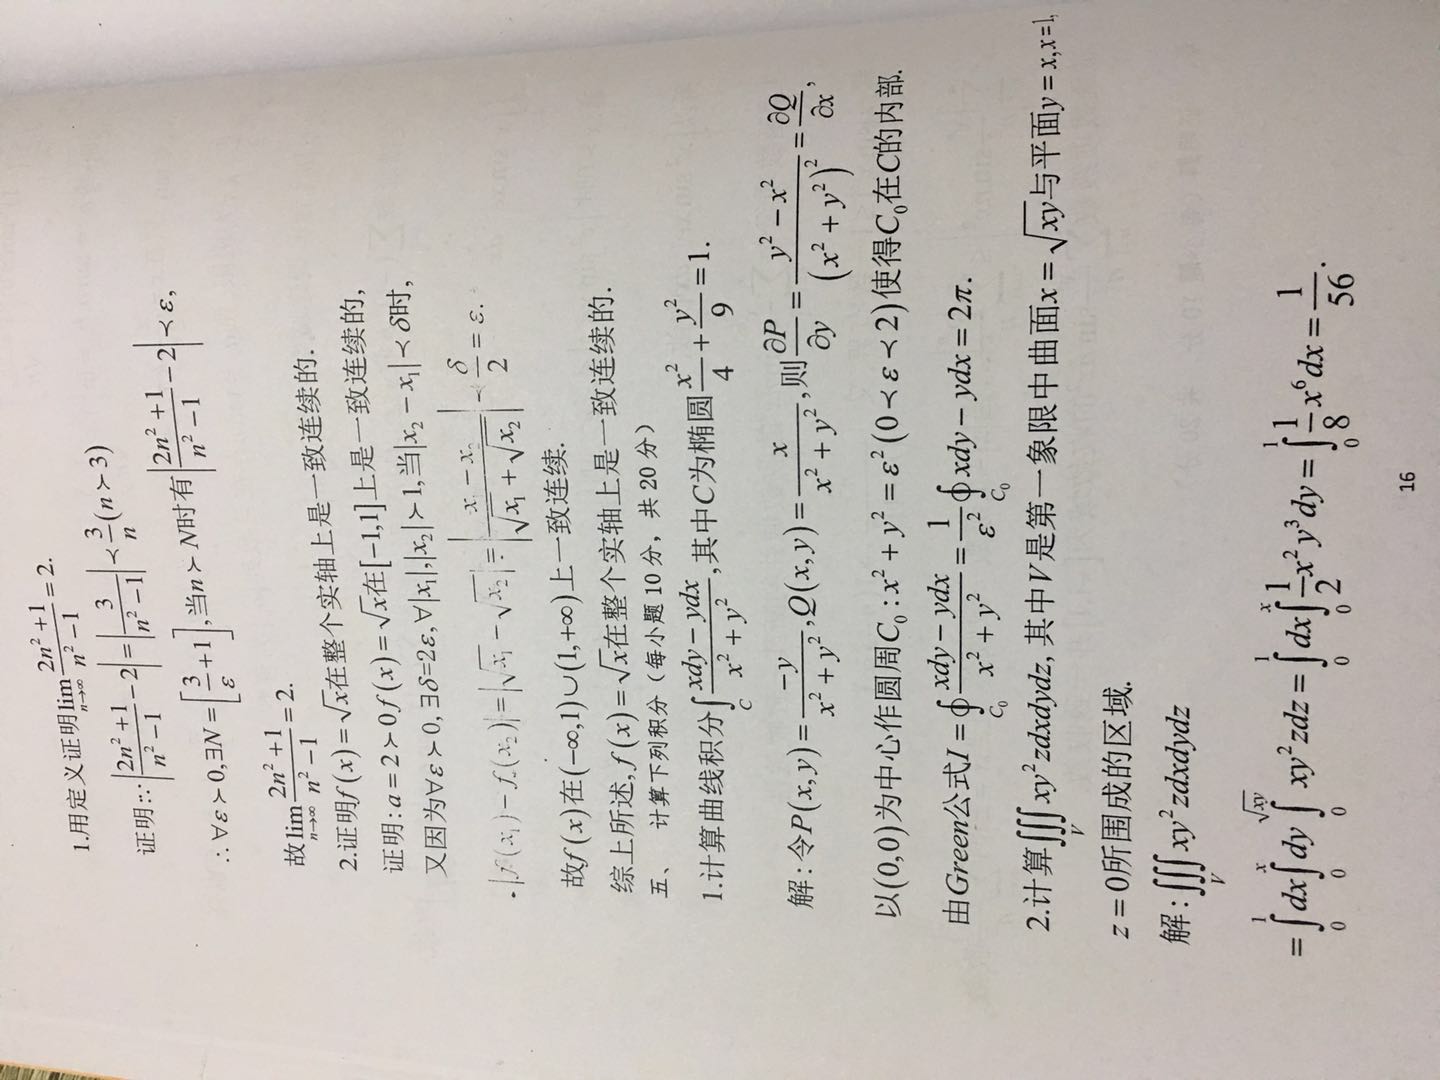 1.用定义证明lim_{n→∞} (2n²+1)/(n²−1) = 2.
证明:∵|(2n²+1)/(n²−1) − 2| = |3/(n²−1)| ≺ 3/n (n≻3)
∴∀ε≻0,∃N=[3/ε+1],当n≻N时有|(2n²+1)/(n²−1) − 2|≺ε,
故lim_{n→∞} (2n²+1)/(n²−1) = 2.
2.证明f(x)=√x在整个实轴上是一致连续的.
证明:a=2≻0f(x)=√x在[−1,1]上是一致连续的,
又因为∀ε≻0,∃δ=2ε,∀|x₁|,|x₂|≻1,当|x₂−x₁|≺δ时,
|f(x₁)−f(x₂)|=|√x₁−√x₂|=|(x₁−x₂)/(√x₁+√x₂)|≺δ/2=ε.
故f(x)在(−∞,1)∪(1,+∞)上一致连续.
综上所述,f(x)=√x在整个实轴上是一致连续的.
五、 计算下列积分（每小题 10 分，共 20 分）
1.计算曲线积分∫_C (xdy−ydx)/(x²+y²),其中C为椭圆x²/4+y²/9=1.
解:令P(x,y)=−y/(x²+y²),Q(x,y)=x/(x²+y²),则∂P/∂y=(y²−x²)/(x²+y²)²=∂Q/∂x,
以(0,0)为中心作圆周C₀:x²+y²=ε²(0≺ε≺2)使得C₀在C的内部.
由Green公式I=∮_{C₀} (xdy−ydx)/(x²+y²)=1/ε² ∮_{C₀} xdy−ydx=2π.
2.计算∭_V xy²zdxdydz,其中V是第一象限中曲面x=√xy与平面y=x,x=1,
z=0所围成的区域.
解:∭_V xy²zdxdydz
=∫₀¹dx∫₀ˣdy∫₀^{√xy} xy²zdz=∫₀¹dx∫₀ˣ 1/2 x²y³dy=∫₀¹ 1/8 x⁶dx=1/56.
16